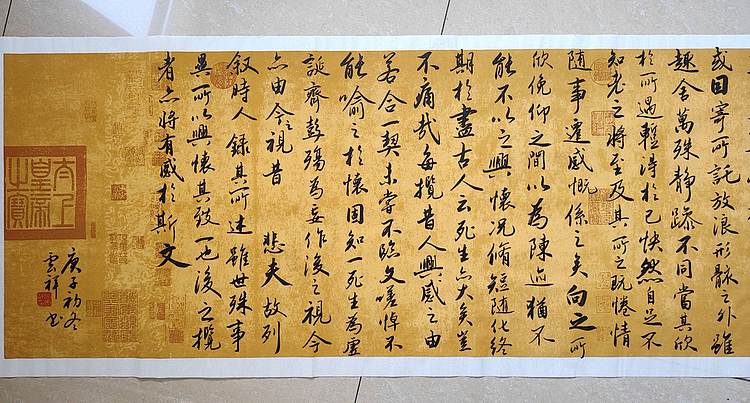 或因寄所託放浪形骸之外雖
趣舍萬殊靜躁不同當其欣
於所遇蹔得於己快然自足不
知老之將至及其所之既惓情
隨事遷感慨係之矣向之所
欣俛仰之間以為陳迹猶不
能不以之興懷況脩短隨化終
期於盡古人云死生亦大矣豈
不痛哉每攬昔人興感之由
若合一契未嘗不臨文嗟悼不
能喻之於懷固知一死生為虛
誕齊彭殤為妄作後之視今
亦由今之視昔 悲夫故列
叙時人錄其所述雖世殊事
異所以興懷其致一也後之攬
者亦將有感於斯文
太上
皇帝
之寶
庚子初冬
雲祥書